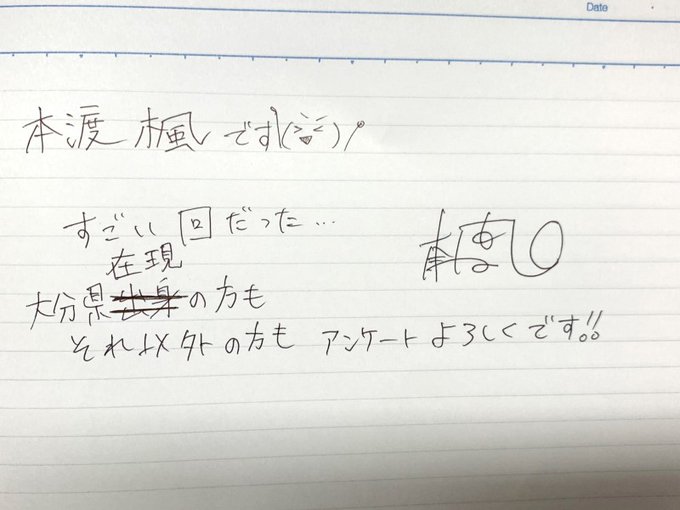 Date
本渡 楓です\(><)/
すごい回だった…
在現
大分県出身の方も
それ以外の方も アンケートよろしくです!!